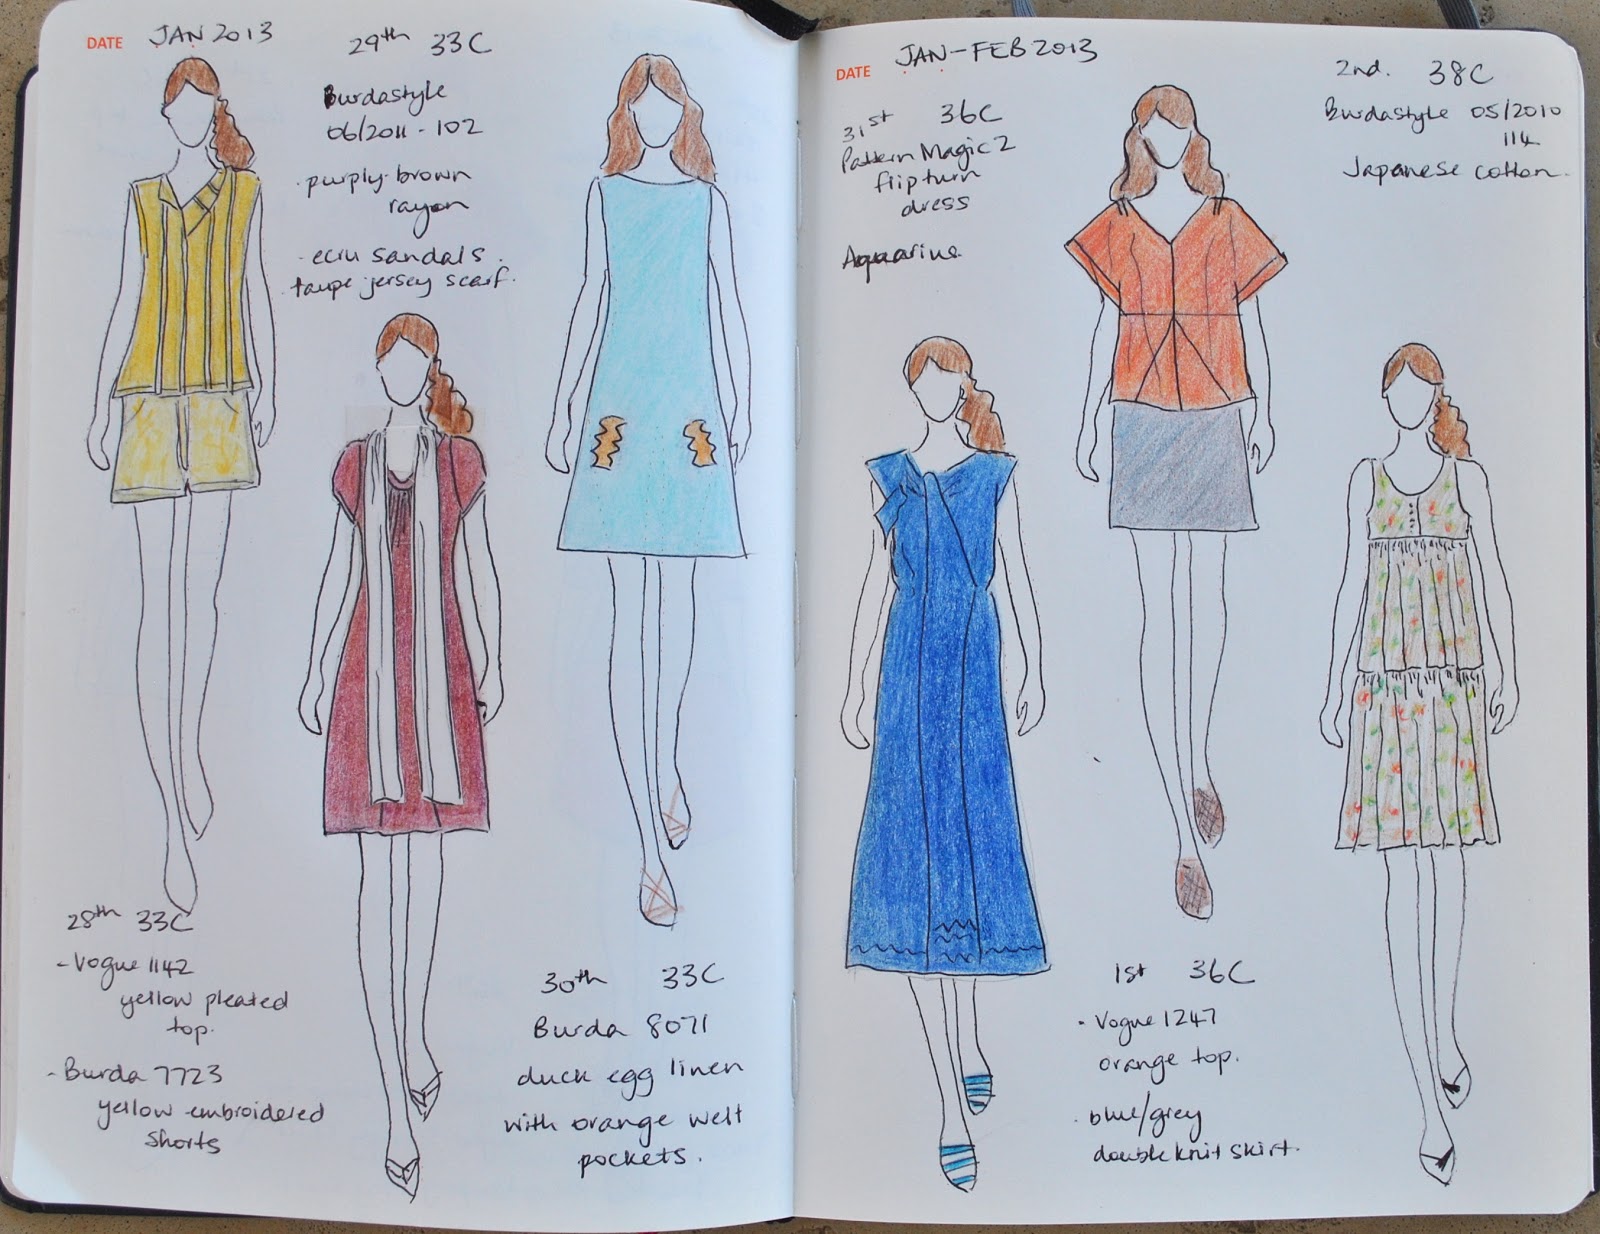 DATE JAN 2013
29th 33C
Burdastyle
06/2011 - 102
- purply-brown
rayon
- ecru sandals.
- taupe jersey scarf.
28th 33C
- Vogue 1142
yellow pleated
top.
- Burda 7723
yellow embroidered
shorts
30th 33C
Burda 8071
duck egg linen
with orange welt
pockets.
DATE JAN - FEB 2013
31st 36C
Pattern Magic 2
flip turn
dress
2nd. 38C
Burdastyle 05/2010
114
Japanese cotton.
1st 36C
- Vogue 1247
orange top.
- blue/grey
double knit skirt.